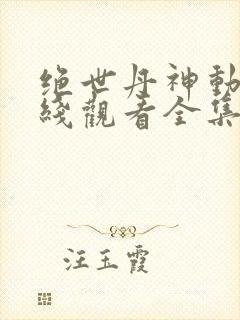 绝世丹神動
綫觀看全集
汪玉霞